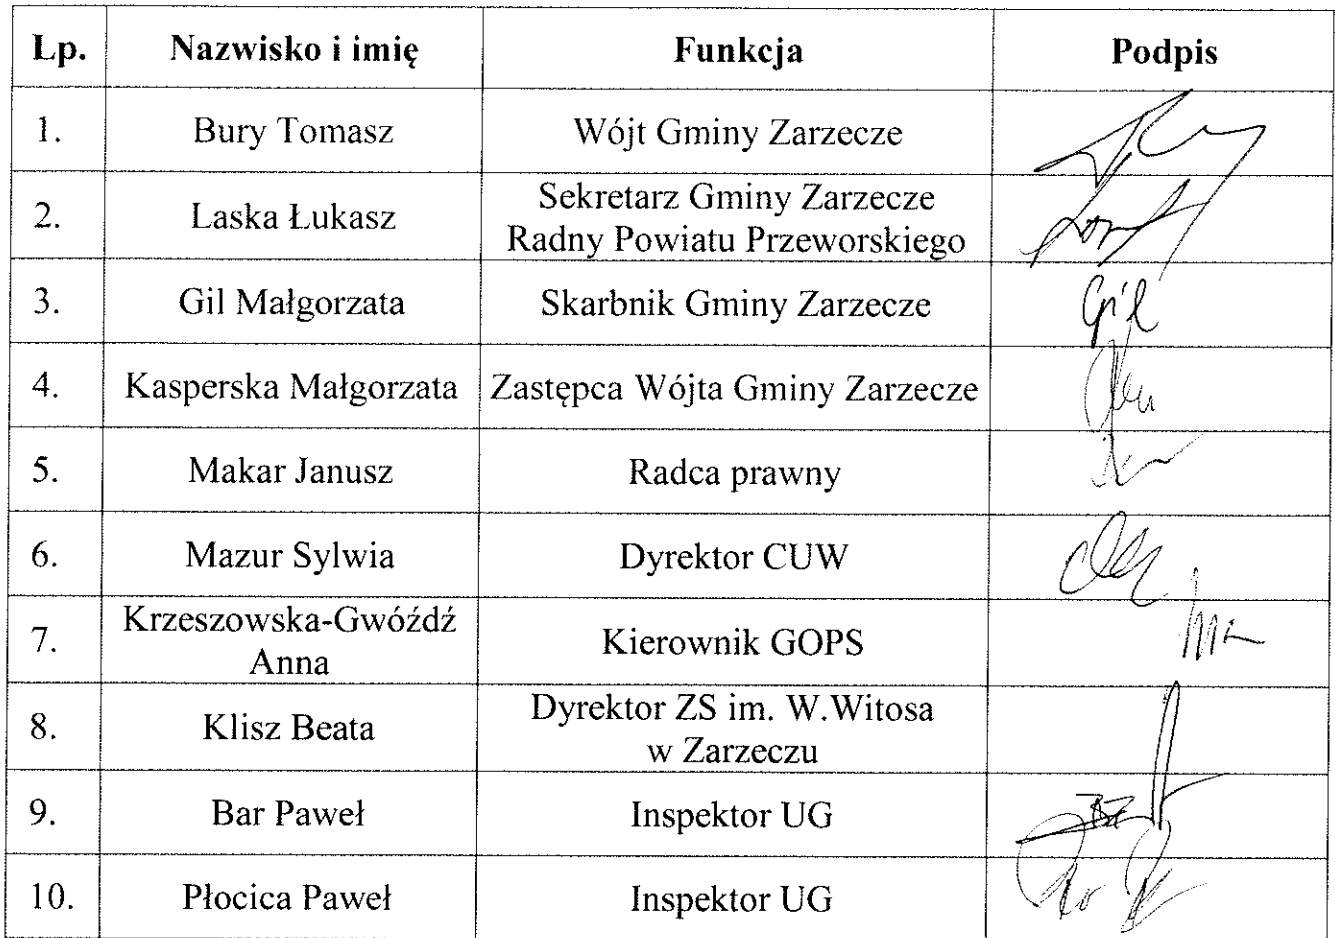 Lp. Nazwisko i imię Funkcja Podpis
1. Bury Tomasz Wójt Gminy Zarzecze
2. Laska Łukasz Sekretarz Gminy Zarzecze
Radny Powiatu Przeworskiego
3. Gil Małgorzata Skarbnik Gminy Zarzecze Gil
4. Kasperska Małgorzata Zastępca Wójta Gminy Zarzecze
5. Makar Janusz Radca prawny
6. Mazur Sylwia Dyrektor CUW
7. Krzeszowska-Gwóźdź
Anna Kierownik GOPS
8. Klisz Beata Dyrektor ZS im. W.Witosa
w Zarzeczu
9. Bar Paweł Inspektor UG
10. Płocica Paweł Inspektor UG